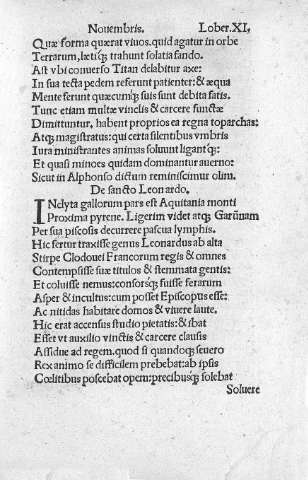 Nouembris. Lober.XI,
Quæ forma quærat viuos. quid agatur in orbe
Terrarum, lætiſq; trahunt ſolatia fando.
Aſt vbi conuerſo Titan delabitur axe:
In ſua tecta pedem referunt patienter: & æqua
Mente ferunt quæcunq; ſuis ſunt debita fatis.
Tunc etiam multæ vinclis & carcere functæ
Dimittuntur, habent proprios ea regna toparchas:
Atq; magiſtratus: qui certa ſilentibus vmbris
Iura miniſtrantes animas ſoluunt ligantq;:
Et quaſi minoes quidam dominantur auerno:
Sicut in Alphonſo dictum reminiſcimur olim.
De ſancto Leonardo.
INclyta gallorum pars eſt Aquitania monti
Proxima pyrene. Ligerim videt atq; Garũnam
Per ſua piſcoſis decurrere paſcua lymphis.
Hic fertur traxiſſe genus Leonardus ab alta
Stirpe Clodouei Francorum regis & omnes
Contempſiſſe ſuæ titulos & ſtemmata gentis:
Et coluiſſe nemus: conſorſq; fuiſſe ferarum
Aſper & incultus: cum poſſet Epiſcopus eſſe:
Ac nitidas habitare domos & viuere laute.
Hic erat accenſus ſtudio pietatis: & ibat
Eſſet vt auxilio vinctis & carcere clauſis
Aſſidue ad regem. quod ſi quandoq; ſeuero
Rex animo ſe difficilem prebebat: ab ipſis
Cœlitibus poſcebat opem: precibuſq; ſolebat
Soluere